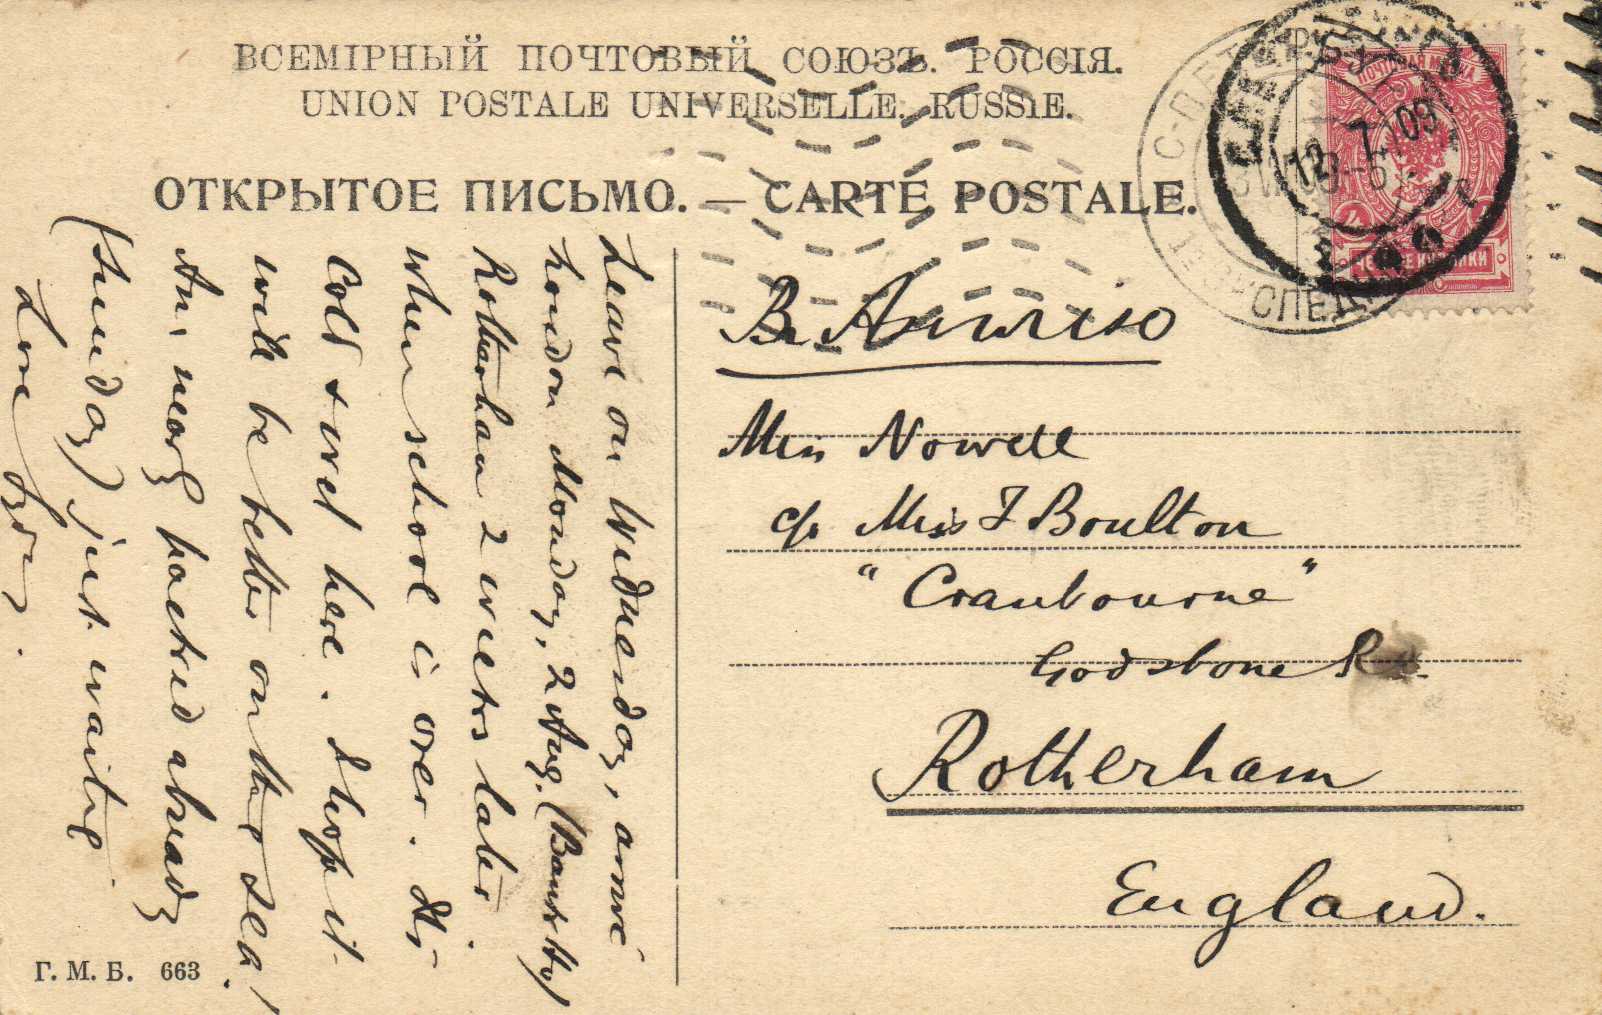 ВСЕМІРНЫЙ ПОЧТОВЫЙ СОЮЗЪ. РОССІЯ.
UNION POSTALE UNIVERSELLE. RUSSIE.
ОТКРЫТОЕ ПИСЬМО. — CARTE POSTALE.
ПОЧТОВАЯ МАРКА
4
12 7 09
Miss Nowell
c/o Miss F Boulton
"Cranbourne"
Godstone Rd.
Rotherham
England.
Leave on Wednesday, arrive
London Monday, 2 Aug. (Bank Hy)
Rotherham 2 weeks later
when school is over. It is
cold & wet here. I hope it
will be better on the sea!
Am nearly packed already
(Sunday) just waiting.
Love
Г. М. Б. 663